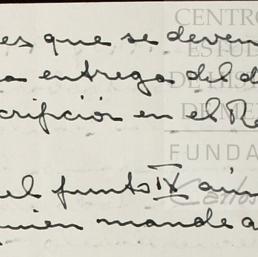 es que se deven
a entrega del d
crifición en el Re
el punto IX aún
uien mande a
CENTRO
ESTU
DE HIS
DE ME
FUNDA
Carlos